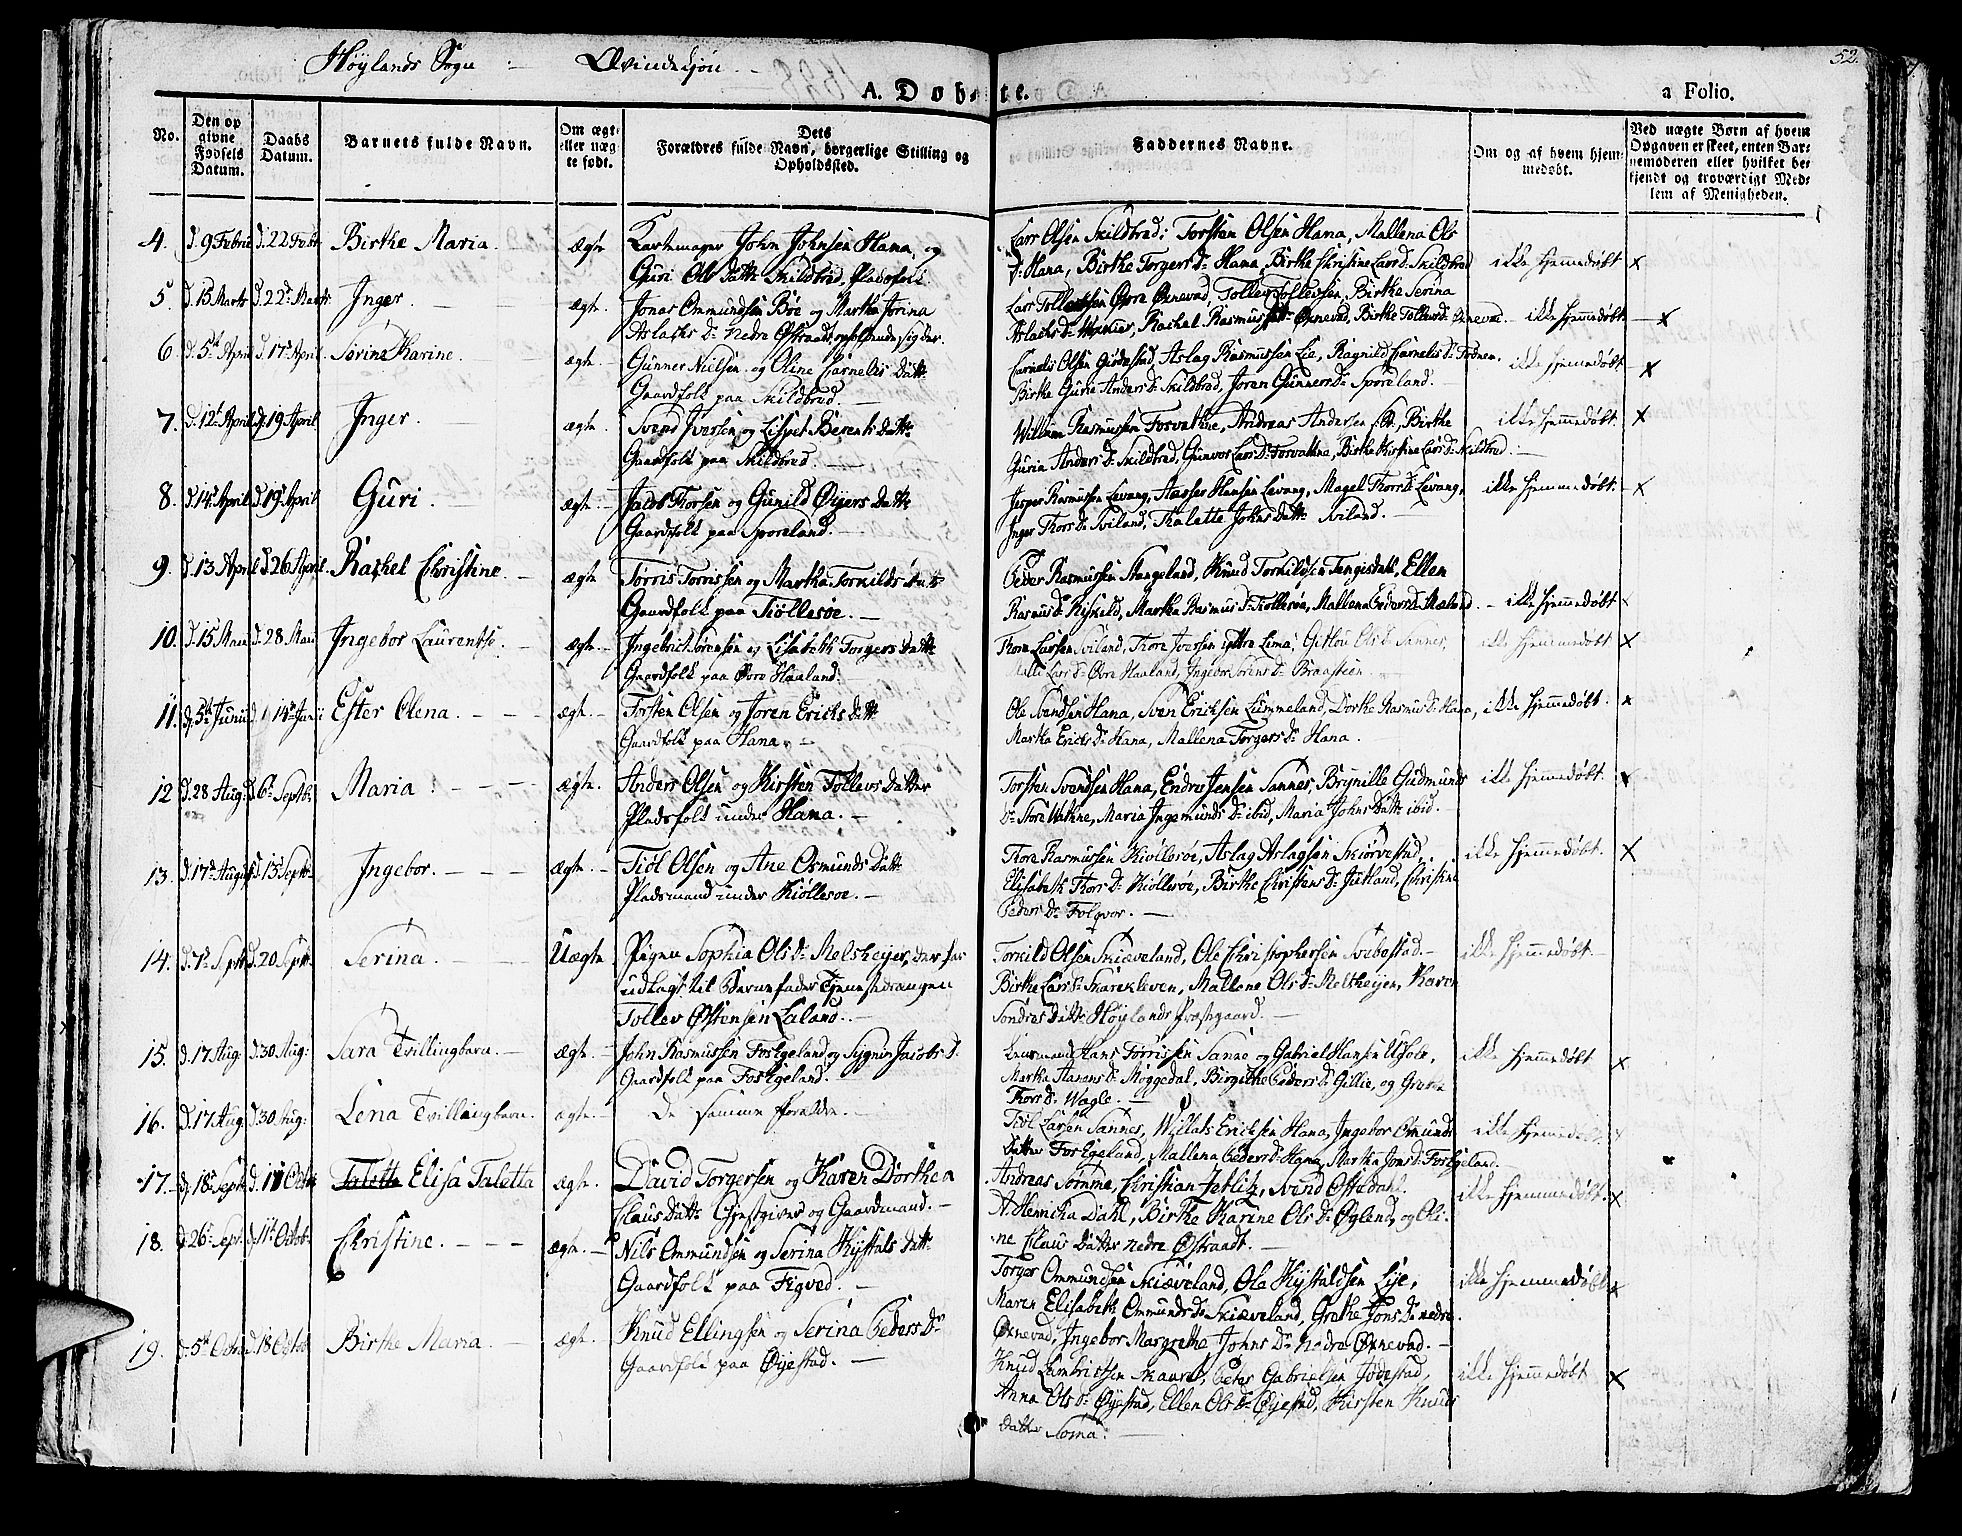 Höylands Sogn : Qvindekjön.
52.
A. Döbte.
a Folio.
No.
Den op givne Födsels Datum.
Daabs Datum.
Barnets fulde Navn.
Om ægte eller uægte födt.
Dets Forældres fulde Navn, borgerlige Stilling og Opholdssted.
Faddernes Navne.
Om og af hvem hjemmedöbt.
Ved uægte Börn af hvem Opgaven er skeet, enten Barnemoderen eller hvilket bekjendt og troværdigt Medlem af Menigheden.
4. d. 9 Febr d. 22 Febr Birthe Maria. Ægte John Johnsen Hana, og
Guri Ols Datt Skildbred, Pladsfolk.
Lars Olsen Skildbred, Torsten Olsen Hana, Mallena Ols
Dr Hana, Birthe Torgers Dr Hana, Birthe Christine Lars Dr Skildbred ikke hjemmedöbt x
5. d. 15 Marts d. 22 Marts Inger. ægte. Jonas Ommundsen Böe og Martha Jorina
Aslachs Dr Nedre Östraadt
Lars Tollevsen Övre Ørnevad, Tollev Tollevsen, Birthe Serina
Aslachs Dr, Rachel Rasmus Dr Ørnevad, Birthe Tollevs Dr Ørnevad. ikke hjemmedöbt x
6. d. 5 April d. 17 April Sörine Karine. ægte. Gunner Nielsen og Oline Cornelis Datt
Gaardfolk paa Skildbred.
Cornelis Olsen Gjedestad, Aslag Rasmussen Lie, Ragnild Cornelis Dr
Birthe Gurie Anders Dr Skildbred, Joren Gunners Dr Sporeland. ikke hjemmedöbt x
7. d. 12 April d. 19 April Inger. ægte. Svend Iversen og Lispet Berents Datt
Gaardfolk paa Skildbred.
Willem Rasmussen Forvathne, Andreas Andersen, Birthe
Guria Anders Dr Skildbred, Gunvor Lars Dr Forvathne, Birthe Kirstine Lars Dr Skildbred. ikke hjemmedöbt x
8. d. 14 April d. 19 April Guri. ægte. Jacob Thorsen og Gunild Öigers Datt
Gaardfolk paa Sporeland.
Jesper Rasmussen Levang, Aasser Hansen Levang, Magel Thors Dr Levang,
Inger Thors Dr Sviland, Thalette Johns Datt Sviland. ikke hjemmedöbt. x
9. d. 13 April d. 26 April. Rachel Christine. ægte Torris Torrissen og Martha Torkilds Datt
Gaardfolk paa Kiöllesöe.
Peder Rasmussen Stangeland, Knud Torkildsen Tengisdal, Ellen
Rasmus Dr, Martha Rasmus Dr Kiöllesöe, Mallena Peders Dr ikke hjemmedöbt x
10. d. 15 Mai d. 28 Mai Ingebor Laurentse. ægte. Ingebrict Sörensen og Lisabeth Torgers Datt
Gaardfolk paa Övre Haaland.
Thore Larsen Sviland, Thore Iversen Lima, Gitlou Ols Dr Sannes,
Malle Lars Dr Övre Haaland, Ingebor Sörens Dr Braasteen. ikke hjemmedöbt x
11. d. 5 Junii d. 14 Junii Ester Olena. ægte. Torsten Olsen og Joren Erichs Datt
Gaardfolk paa Hana.
Ole Svendsen Hana, Sven Ericksen Lummeland, Dorthe Rasmus Dr Hana,
Martha Erichs Dr Hana, Mallena Torgers Dr Hana. ikke hjemmedöbt. x
12 d. 28 Aug. d. 6 Septbr Maria. ægte. Anders Olsen og Kirsten Tollevs Datter
Pladsfolk under Hana.
Torsten Svendsen Hana, Endre Jensen Sannes, Brynille Gudmunds
Dr Store Vathne, Maria Ingemunds Dr ibid, Maria Johns Datt ibid. ikke hjemmedöbt x
13. d. 17 August d. 13 Septr. Ingebor. ægte. Tiöl Olsen og Ane Osmunds Datt
Pladsmand under Kiöllesöe.
Thore Rasmussen Kiöllesöe, Aslag Aslagsen Skiörvestad,
Elisabeth Thors Dr Kiöllesöe, Birthe Christens Dr Jutland, Christine
Peders Dr Folgvor. ikke hjemmedöbt. x
14. d. 7 Septr d. 20 Septr. Serina. Uægte Pigen Sophia Ols Dr Melsheijer, der har
udlagt til Barnefader Tjenestedrengen
Tollev Östensen Laland.
Torkild Olsen Skiæveland, Ole Christophersen Svebostad.
Birthe Lars Dr Skareckleven, Mallene Ols Dr Melsheijen, Karen
Sondres Datt Höylands Præstegaard. ikke hjemmedöbt
15. d. 17 Aug: d. 30 Aug: Sara Tvillingbarn. ægte. John Rasmussen Fos Egeland og Sygnis Jacobs D.
Gaardfolk paa Fos Egeland.
Lensmand Hans Torrissen Sanne og Gabriel Hansen,
Martha Hagens Dr Moggedal, Birgithe Peders Dr Gillie, og Grete
Thors Dr Wagle. ikke hjemmedöbt x
16. d. 17 Aug. d. 30 Aug: Lena Tvillingbarn. ægte. De samme Forældre.
Tiöl Larsen Sannes, Willats Ericksen Hana, Ingebor Omunds
Datter Fos Egeland, Mallena Peders Dr Hana, Martha Jons Dr Fos Egeland. ikke hjemmedöbt. x
17. d. 18 Septr d. 11 Octobr Talette Elisa Taletta ægte. David Torgersen og Karen Dorthea
Claus Datt Gjestgiver og Gaardmand.
Andreas Somme, Christian Zetlitz, Svend Östedahl.
A. Henricka Dahl, Birthe Karine Ols Dr Öglend, og Oli-
ne Claus Datter Nedre Östraadt. ikke hjemmedöbt. x
18. d. 26 Sept. d. 11 Octob. Christine. ægte. Nils Ommundsen og Serina Kystals Datt
Gaardfolk paa Figved.
Torger Ommundsen Skiæveland, Ole Kystaldsen Lye,
Maren Elisabeth Ommunds Dr Skiæveland, Grethe Jons Dr nedre
Ørnevad, Ingebor Margrethe Johns Dr Nedre Ørnevad. ikke hjemmedöbt x
19. d. 5 Octob d. 18 Octob Birthe Maria ægte. Knud Ellingsen og Serina Peders Dr
Gaardfolk paa Öyestad.
Knud Lambrictsen Skaare, Peter Gabrielsen Jödestad,
Anna Ols Dr Öyestad, Ellen Ols Dr Öyestad, Kirsten Knuds
Datter Soma. ikke hjemmedöbt x